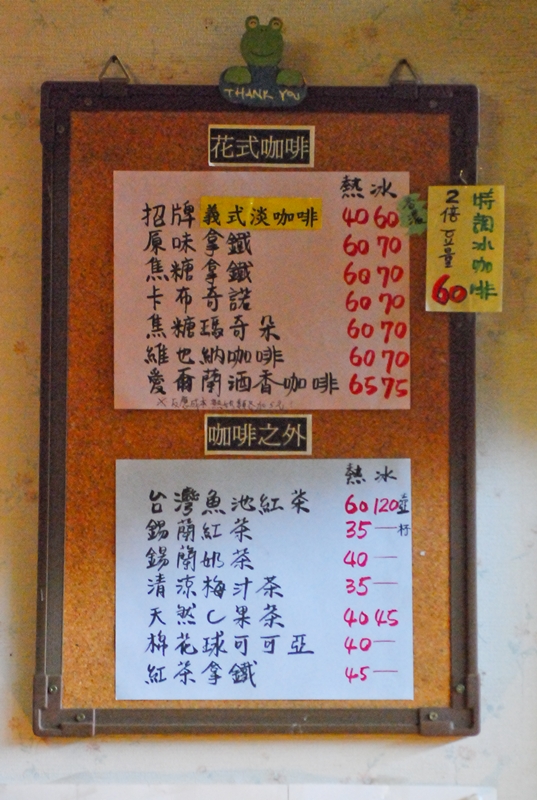 THANK YOU
花式咖啡
熱 冰
招牌 義式淡咖啡 40 60
原味拿鐵 60 70
焦糖拿鐵 60 70
卡布奇諾 60 70
焦糖瑪奇朵 60 70
維也納咖啡 60 70
愛爾蘭酒香咖啡 65 75
特調冰咖啡
2倍豆量
60
咖啡之外
熱 冰
台灣魚池紅茶 60 120 壺
錫蘭紅茶 35 — 杯
錫蘭奶茶 40 —
清涼梅汁茶 35 —
天然C果茶 40 45
棉花球可可亞 40 —
紅茶拿鐵 45 —